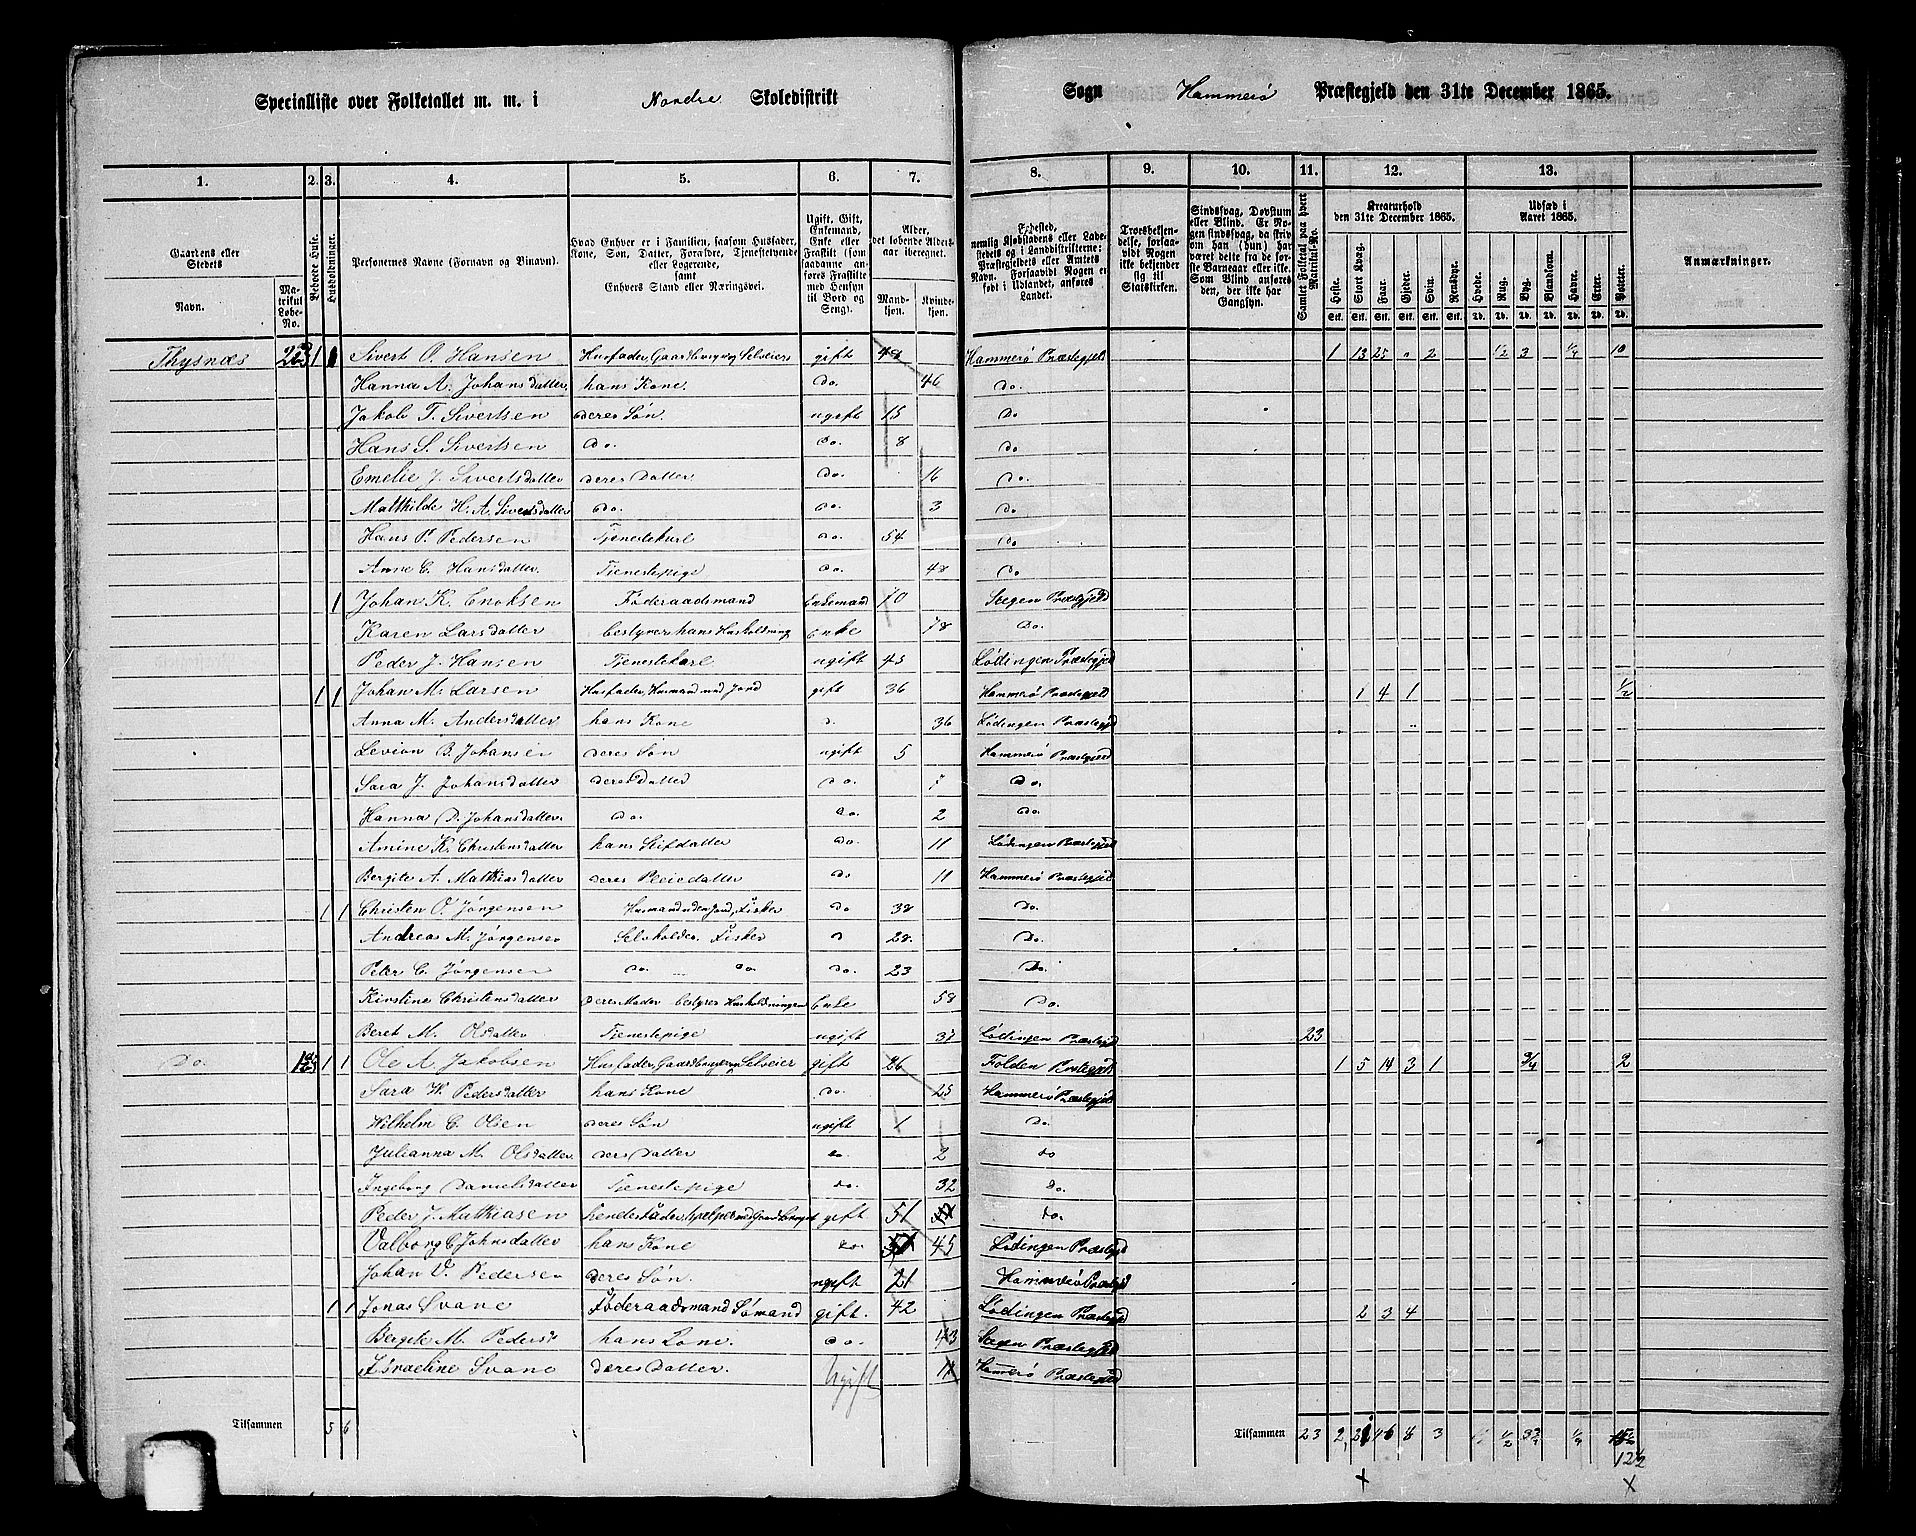 Specialliste over Folketallet m. m. i Nordre Skoledistrikt Sogn Hammerø Præstegjeld den 31te December 1865.
1. 2. 3. 4. 5. 6. 7. 8. 9. 10. 11. 12. 13.
Gaardens eller Stedets Navn. Matrikul Løbe-No. Beboede Huse. Husholdninger. Personernes Navne (Fornavn og Binavn). Hvad Enhver er i Familien, saasom Husfader, Kone, Søn, Datter, Forældre, Tjenestetyende eller Logerende, samt Enhvers Stand eller Næringsvei. Ugift, Gift, Enkemand, Enke eller Fraskilt (som saadanne anføres Fraskilte med Hensyn til Bord og Seng). Alder, det løbende Alders-aar iberegnet. Mandkjøn. Kvindekjøn.
Fødested, nemlig Kjøbstadens eller Ladestedets og i Landdistrikterne: Præstegjeldets eller Amtets Navn. Forsaavidt Nogen er født i Udlandet, anføres Landet. Troesbekjendelse, forsaavidt Nogen ikke bekjender sig til Statskirken. Sindssvag, Døvstum eller Blind. Er Nogen sindssvag, da skrives om han (hun) har været dette fra de første Barneaar eller ikke. Som Blind anføres den, der ikke har Gangsyn. Samlet Folketal paa hvert Matrikul-No. Kreaturhold den 31te December 1865. Heste. Stort Kvæg. Faar. Gjeder. Svin. Rensdyr. Udsæd i Aaret 1865. Hvede. Rug. Byg. Blandkorn. Havre. Erter. Poteter. Anmærkninger.
Thysnæs 1 1 Sivert O. Hansen Husfader, Gaardbruger Selveier gift 48 Hammerø Præstegjeld 1 13 25 " 2 1/2 3 1/4 10
Hanna A. Johansdatter hans Kone. Do. 46 Do.
Jakob T. Sivertsen deres Søn. ugift 15 Do
Hans S. Sivertsen Do. Do. 8 Do
Emelie J. Sivertsdatter deres Datter Do. 16 Do.
Mathilde H. A. Sivertsdatter Do. Do. 3 Do
Hans P. Pedersen Tjenestekarl Do. 54 Do
Anne C. Hansdatter. Tjenestepige Do. 48 Do
1 Johan K. Enoksen Føderaadsmand Enkemand 70 Stegen Præstegjeld
Karen Larsdatter bestyrer hans Husholdning Enke 78 Do.
Peder J. Hansen Tjenestekarl ugift 45 Lødingen Præstegjeld
1 1 Johan M. Larsen Husfader, Husmand med Jord gift 36 Hammerø Præstegjeld 1 4 1 1/2
Anna M. Andersdatter hans Kone D. 36 Lødingen Præstegjeld
B. Johansen deres Søn ugift 5 Hammerø Præstegjeld
Sara J. Johansdatter deres Datter Do. 7 Do.
Hanna D. Johansdatter. Do. Do. 2 Do
Amine K. Christensdatter hans Stifdatter Do. 11 Lødingen Præstegjeld
Bergite A. Mathiasdatter deres Pleiedatter Do 11 Hammerø Præstegjeld
1 1 Christen O. Jørgensen Husmand uden Jord, Fisker Do 38 Do.
Andreas M. Jørgensen Fisker D 28. Do.
Peter C. Jørgensen Do. Do Do. 23 Do.
Kirstine Christensdatter deres Moder bestyrer Husholdningen Enke 58 Do.
Beret M. Olsdatter Tjenestepige ugift 37 Lødingen Præstegjeld 23
Do. 1 1 Ole A. Jakobsen Husfader, Gaardbruger Selveier gift 26 Folden Præstegjeld 1 5 14 3 1 3/4 2
Sara W. Pedersdatter hans Kone Do. 25 Hammerø Præstegjeld
Wilhelm C. Olsen deres Søn ugift 1 Do.
Julianna M. Olsdatter. deres Datter Do. 2 Do
Ingeborg Danielsdatter Tjenestepige Do. 32 Do.
Peder J. Mathiasen hendes Fader, gift 51 Do.
Valborg C. Johnsdatter hans Kone Do. 45 Lødingen Præstegjeld
Johan V. Pedersen deres Søn. ugift 21 Hammerø Præstegjeld
1 1 Jonas Svane Føderaadsmand Sømand gift. 42 Lødingen Præstegjeld 2 3 4
Bergite M. Pedersd hans Kone. Do. 43 Stegen Præstegjeld
Israeline Svane deres Datter. Ugift 11 Hammerø Præstegjeld
Tilsammen 5 6 Tilsammen 23 2 21 46 8 3 1/2 1/4
12 1/2